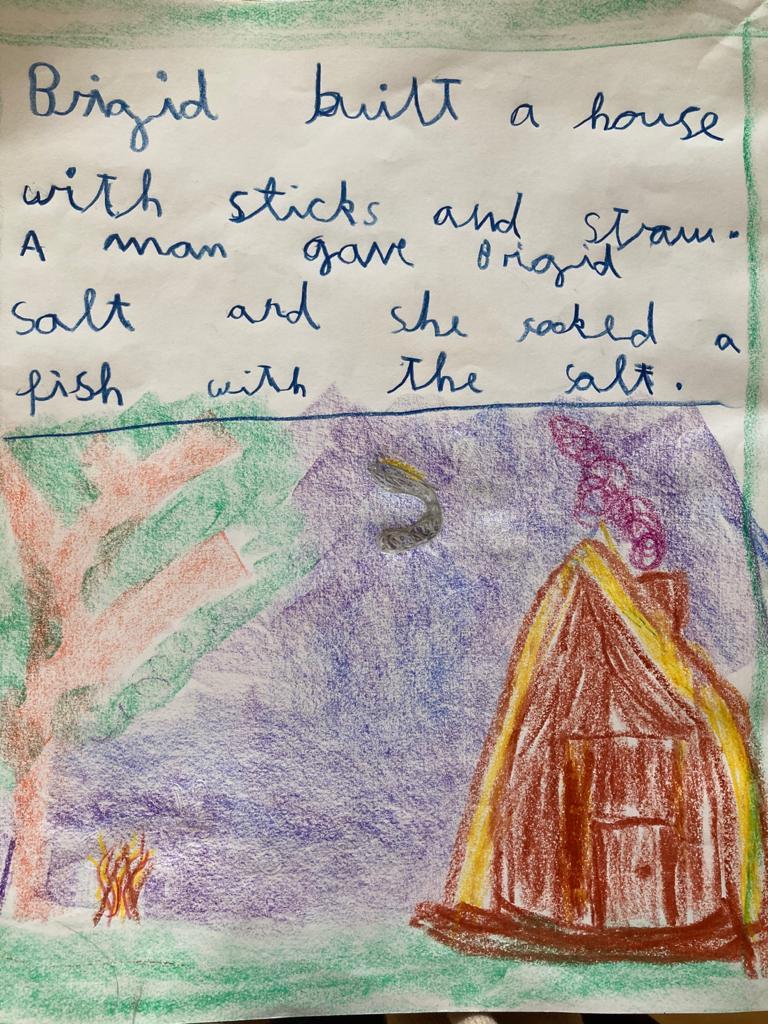 Brigid built a house
with sticks and straw.
A man gave Brigid
salt and she cooked a
fish with the salt.